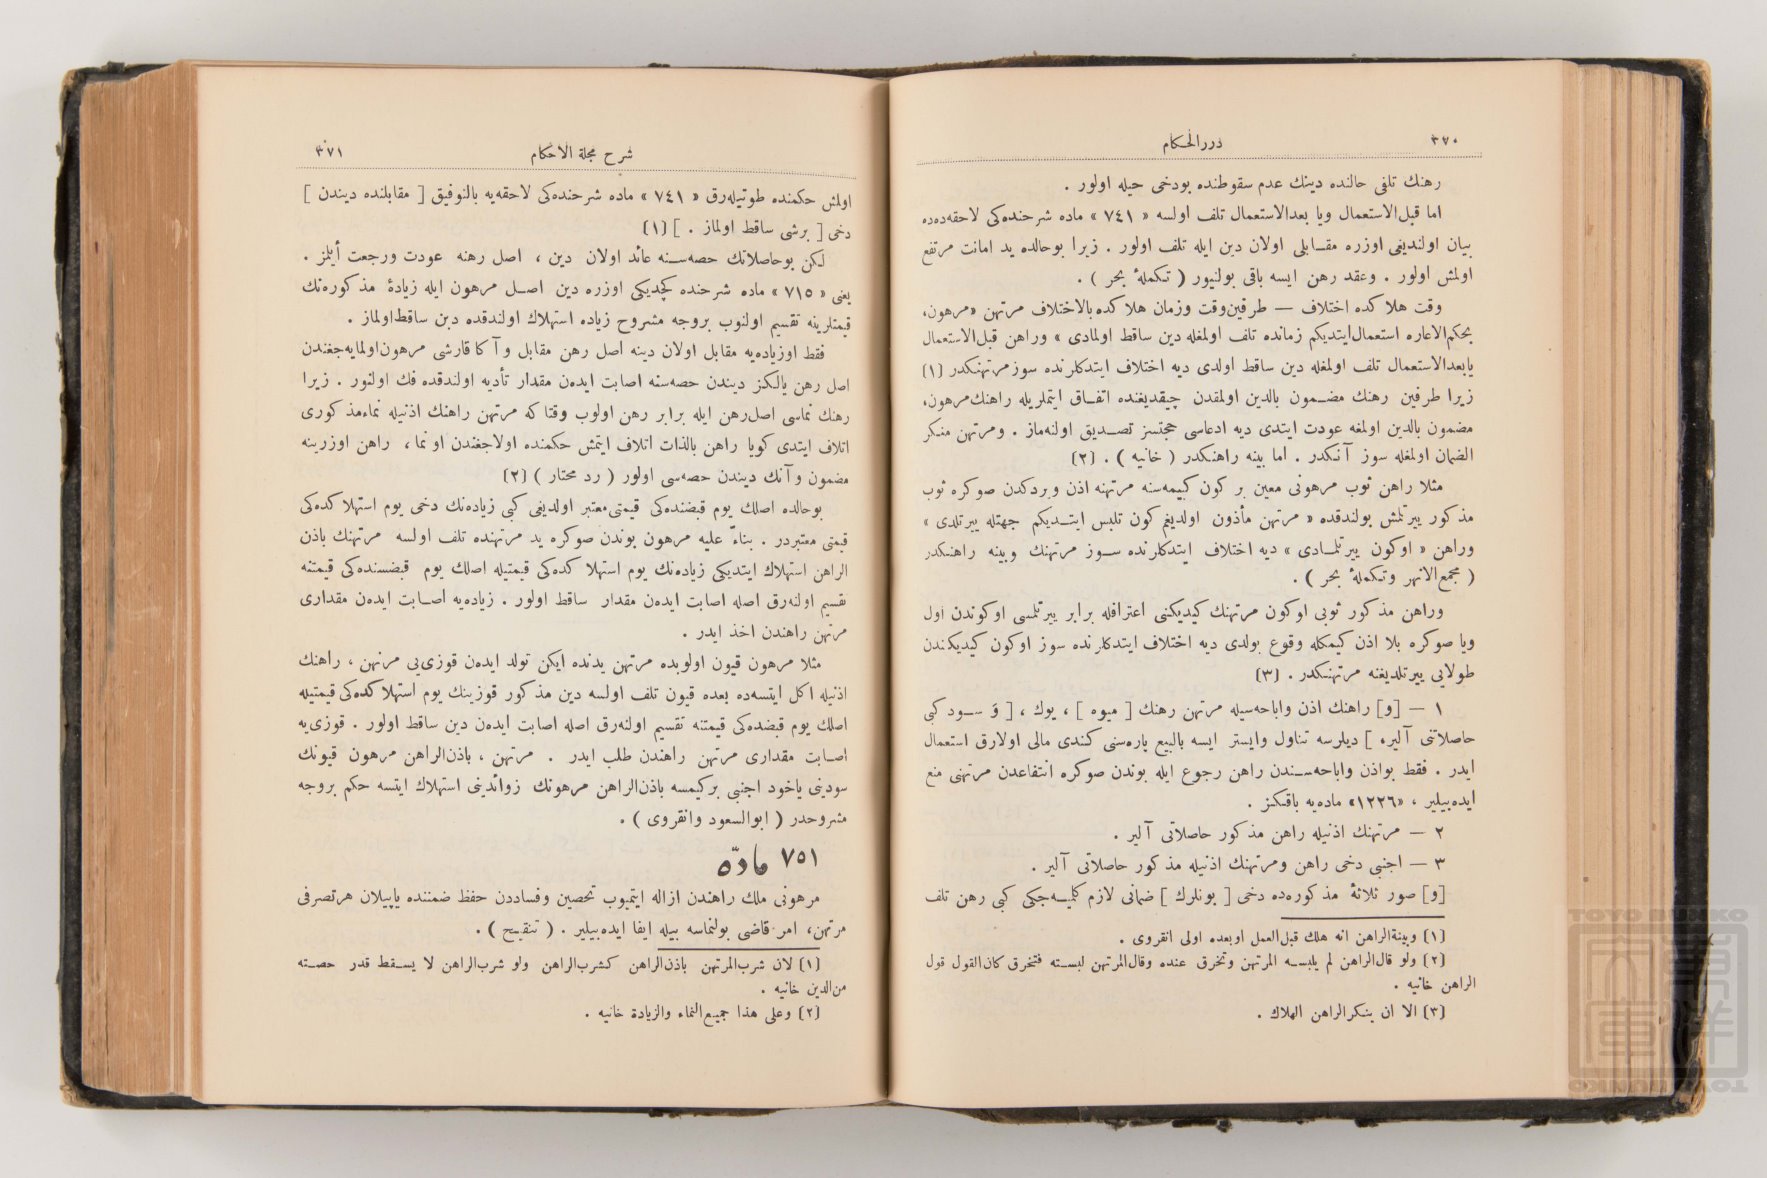 ٣٧٠
دررالحكام
رهنك تلفی حالنده دينك عدم سقوطنده بودخی حيله اولور .
اما قبل‌الاستعمال ويا بعدالاستعمال تلف اولسه « ٧٤١ » ماده شرحنده‌كی لاحقه‌ده‌ده
بيان اولنديغی اوزره مقابلی اولان دين ايله تلف اولور . زيرا بوحالده يد امانت مرتفع
اولمش اولور . وعقد رهن ايسه باقی بولنيور ( تكملهٔ بحر ) .
وقت هلاكده اختلاف — طرفين‌وقت وزمان هلاكده‌بالاختلاف مرتهن «مرهون،
بحكم‌الاعاره استعمال‌ايتديكم زمانده تلف اولمغله دين ساقط اولمادی » وراهن قبل‌الاستعمال
يابعدالاستعمال تلف اولمغله دين ساقط اولدی ديه اختلاف ايتدكلرنده سوزمرتهنكدر (١)
زيرا طرفين رهنك مضمون بالدين اولمقدن چيقديغنده اتفاق ايتملريله راهنك‌مرهون،
مضمون بالدين اولمغه عودت ايتدی ديه ادعاسی حجتسز تصديق اولنه‌ماز . ومرتهن منكر
الضمان اولمغله سوز آنكدر . اما بينه راهنكدر ( خانيه ) . (٢)
مثلا راهن ثوب مرهونی معين بر كون كييمه‌سنه مرتهنه اذن ويردكدن صوكره ثوب
مذكور ييرتلمش بولندقده « مرتهن مأذون اولديغم كون تلبس ايتديكم جهتله ييرتلدی »
وراهن « اوكون ييرتلمادی » ديه اختلاف ايتدكلرنده سوز مرتهنك وبينه راهنكدر
( مجمع‌الانهر وتكملهٔ بحر ) .
وراهن مذكور ثوبی اوكون مرتهنك كيديكنی اعترافله برابر ييرتلمسی اوكوندن اول
ويا صوكره بلا اذن كيمكله وقوع بولدی ديه اختلاف ايتدكلرنده سوز اوكون كيديكندن
طولايی ييرتلديغنه مرتهنكدر . (٣)
١ — [و] راهنك اذن واباحه‌سيله مرتهن رهنك [ ميوه ] ، يوك ، [ وَ سود كبی
حاصلاتنی آلير، ] ديلرسه تناول وايستر ايسه بالبيع پاره‌سنی كندی مالی اولارق استعمال
ايدر . فقط بواذن واباحه‌سندن راهن رجوع ايله بوندن صوكره انتفاعدن مرتهنی منع
ايده‌بيلير ، «١٢٢٦» ماده‌يه باقكز .
٢ — مرتهنك اذنيله راهن مذكور حاصلاتی آلير .
٣ — اجنبی دخی راهن ومرتهنك اذنيله مذكور حاصلاتی آلير .
[و] صور ثلاثهٔ مذكوره‌ده دخی [ بونلرك ] ضمانی لازم كلميه‌جكی كبی رهن تلف
(١) وبينةالراهن انه هلك قبل‌العمل اوبعده اولی انقروی .
(٢) ولو قال‌الراهن لم يلبسه المرتهن وتخرق عنده وقال‌المرتهن لبسته فتخرق كان‌القول قول
الراهن خانيه .
(٣) الا ان ينكرالراهن الهلاك .
شرح مجلة الاحكام
٣٧١
اولمش حكمنده طوتيله‌رق « ٧٤١ » ماده شرحنده‌كی لاحقه‌يه بالتوفيق [ مقابلنده ديندن ]
دخی [ برشی ساقط اولماز . ] (١)
لكن بوحاصلاتك حصه‌سنه عائد اولان دين ، اصل رهنه عودت ورجعت أيلمز .
يعنی « ٧١٥ » ماده شرحنده كچديكی اوزره دين اصل مرهون ايله زيادهٔ مذكوره‌نك
قيمتلرينه تقسيم اولنوب بروجه مشروح زياده استهلاك اولندقده دين ساقط‌اولماز .
فقط اوزياده‌يه مقابل اولان دينه اصل رهن مقابل و آكا قارشی مرهون‌اولمايه‌جغندن
اصل رهن يالكز ديندن حصه‌سنه اصابت ايده‌ن مقدار تأديه اولندقده فك اولنور . زيرا
رهنك نماسی اصل‌رهن ايله برابر رهن اولوب وقتاكه مرتهن راهنك اذنيله نماءمذكوری
اتلاف ايتدی كويا راهن بالذات اتلاف ايتمش حكمنده اولاجغندن او نما، راهن اوزرينه
مضمون وآنك ديندن حصه‌سی اولور ( رد محتار ) (٢)
بوحالده اصلك يوم قبضنده‌كی قيمتی‌معتبر اولديغی كبی زياده‌نك دخی يوم استهلاكده‌كی
قيمتی معتبردر . بناءً عليه مرهون بوندن صوكره يد مرتهنده تلف اولسه مرتهنك باذن
الراهن استهلاك ايتديكی زياده‌نك يوم استهلاكده‌كی قيمتيله اصلك يوم قبضنده‌كی قيمتنه
تقسيم اولنه‌رق اصله اصابت ايده‌ن مقدار ساقط اولور . زياده‌يه اصابت ايده‌ن مقداری
مرتهن راهندن اخذ ايدر .
مثلا مرهون قيون اولوبده مرتهن يدنده ايكن تولد ايده‌ن قوزی‌يی مرتهن ، راهنك
اذنيله اكل ايتسه‌ده بعده قيون تلف اولسه دين مذكور قوزينك يوم استهلاكده‌كی قيمتيله
اصلك يوم قبضده‌كی قيمتنه تقسيم اولنه‌رق اصله اصابت ايده‌ن دين ساقط اولور . قوزی‌يه
اصابت مقداری مرتهن راهندن طلب ايدر . مرتهن ، باذن‌الراهن مرهون قيونك
سودينی ياخود اجنبی بركيمسه باذن‌الراهن مرهونك زوائدينی استهلاك ايتسه حكم بروجه
مشروحدر ( ابوالسعود وانقروی ) .
٧٥١ مادّه
مرهونی ملك راهندن ازاله ايتميوب تحصين وفساددن حفظ ضمننده ياپيلان هرتصرفی
مرتهن، امر قاضی بولنماسه بيله ايفا ايده‌بيلير . ( تنقيح ) .
(١) لان شرب‌المرتهن باذن‌الراهن كشرب‌الراهن ولو شرب‌الراهن لا يسقط قدر حصته
من‌الدين خانيه .
(٢) وعلی هذا جميع‌النماء والزيادة خانيه .
TOYO BUNKO
東洋文庫
TOYO BUNKO